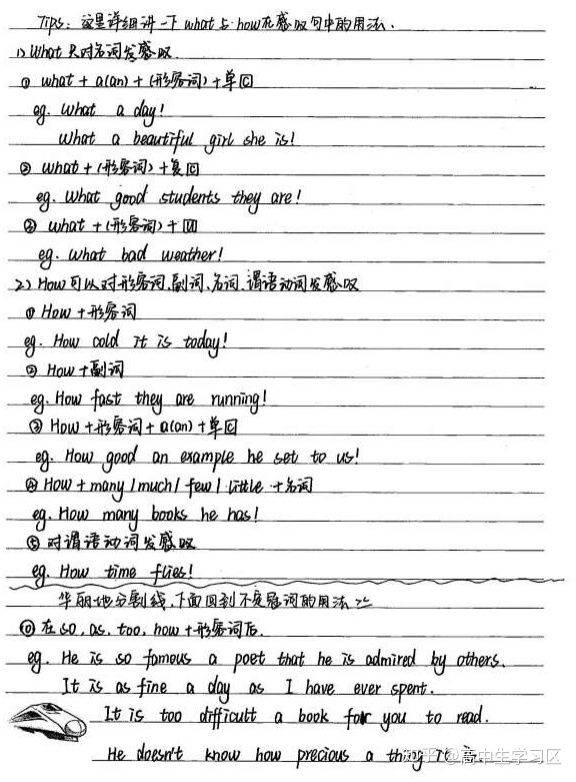 Tips: 这里详细讲一下 what 与 how 在感叹句中的用法.
1) What 只对名词发感叹.
① what + a(an) + (形容词) + 单[C]
eg. What a day!
What a beautiful girl she is!
② what + (形容词) + 复[C]
eg. What good students they are!
③ what + (形容词) + [U]
eg. What bad weather!
2) How 可以对形容词.副词.名词.谓语动词发感叹
① How + 形容词
eg. How cold it is today!
② How + 副词
eg. How fast they are running!
③ How + 形容词 + a(an) + 单[C]
eg. How good an example he set to us!
④ How + many / much / few / little + 名词
eg. How many books he has!
⑤ 对谓语动词发感叹
eg. How time flies!
华丽地分割线.下面回到不定冠词的用法 >>
⑩ 在 so, as, too, how + 形容词后.
eg. He is so famous a poet that he is admired by others.
It is as fine a day as I have ever spent.
It is too difficult a book for you to read.
He doesn't know how precious a thing it is.
知乎 @高中生学习区